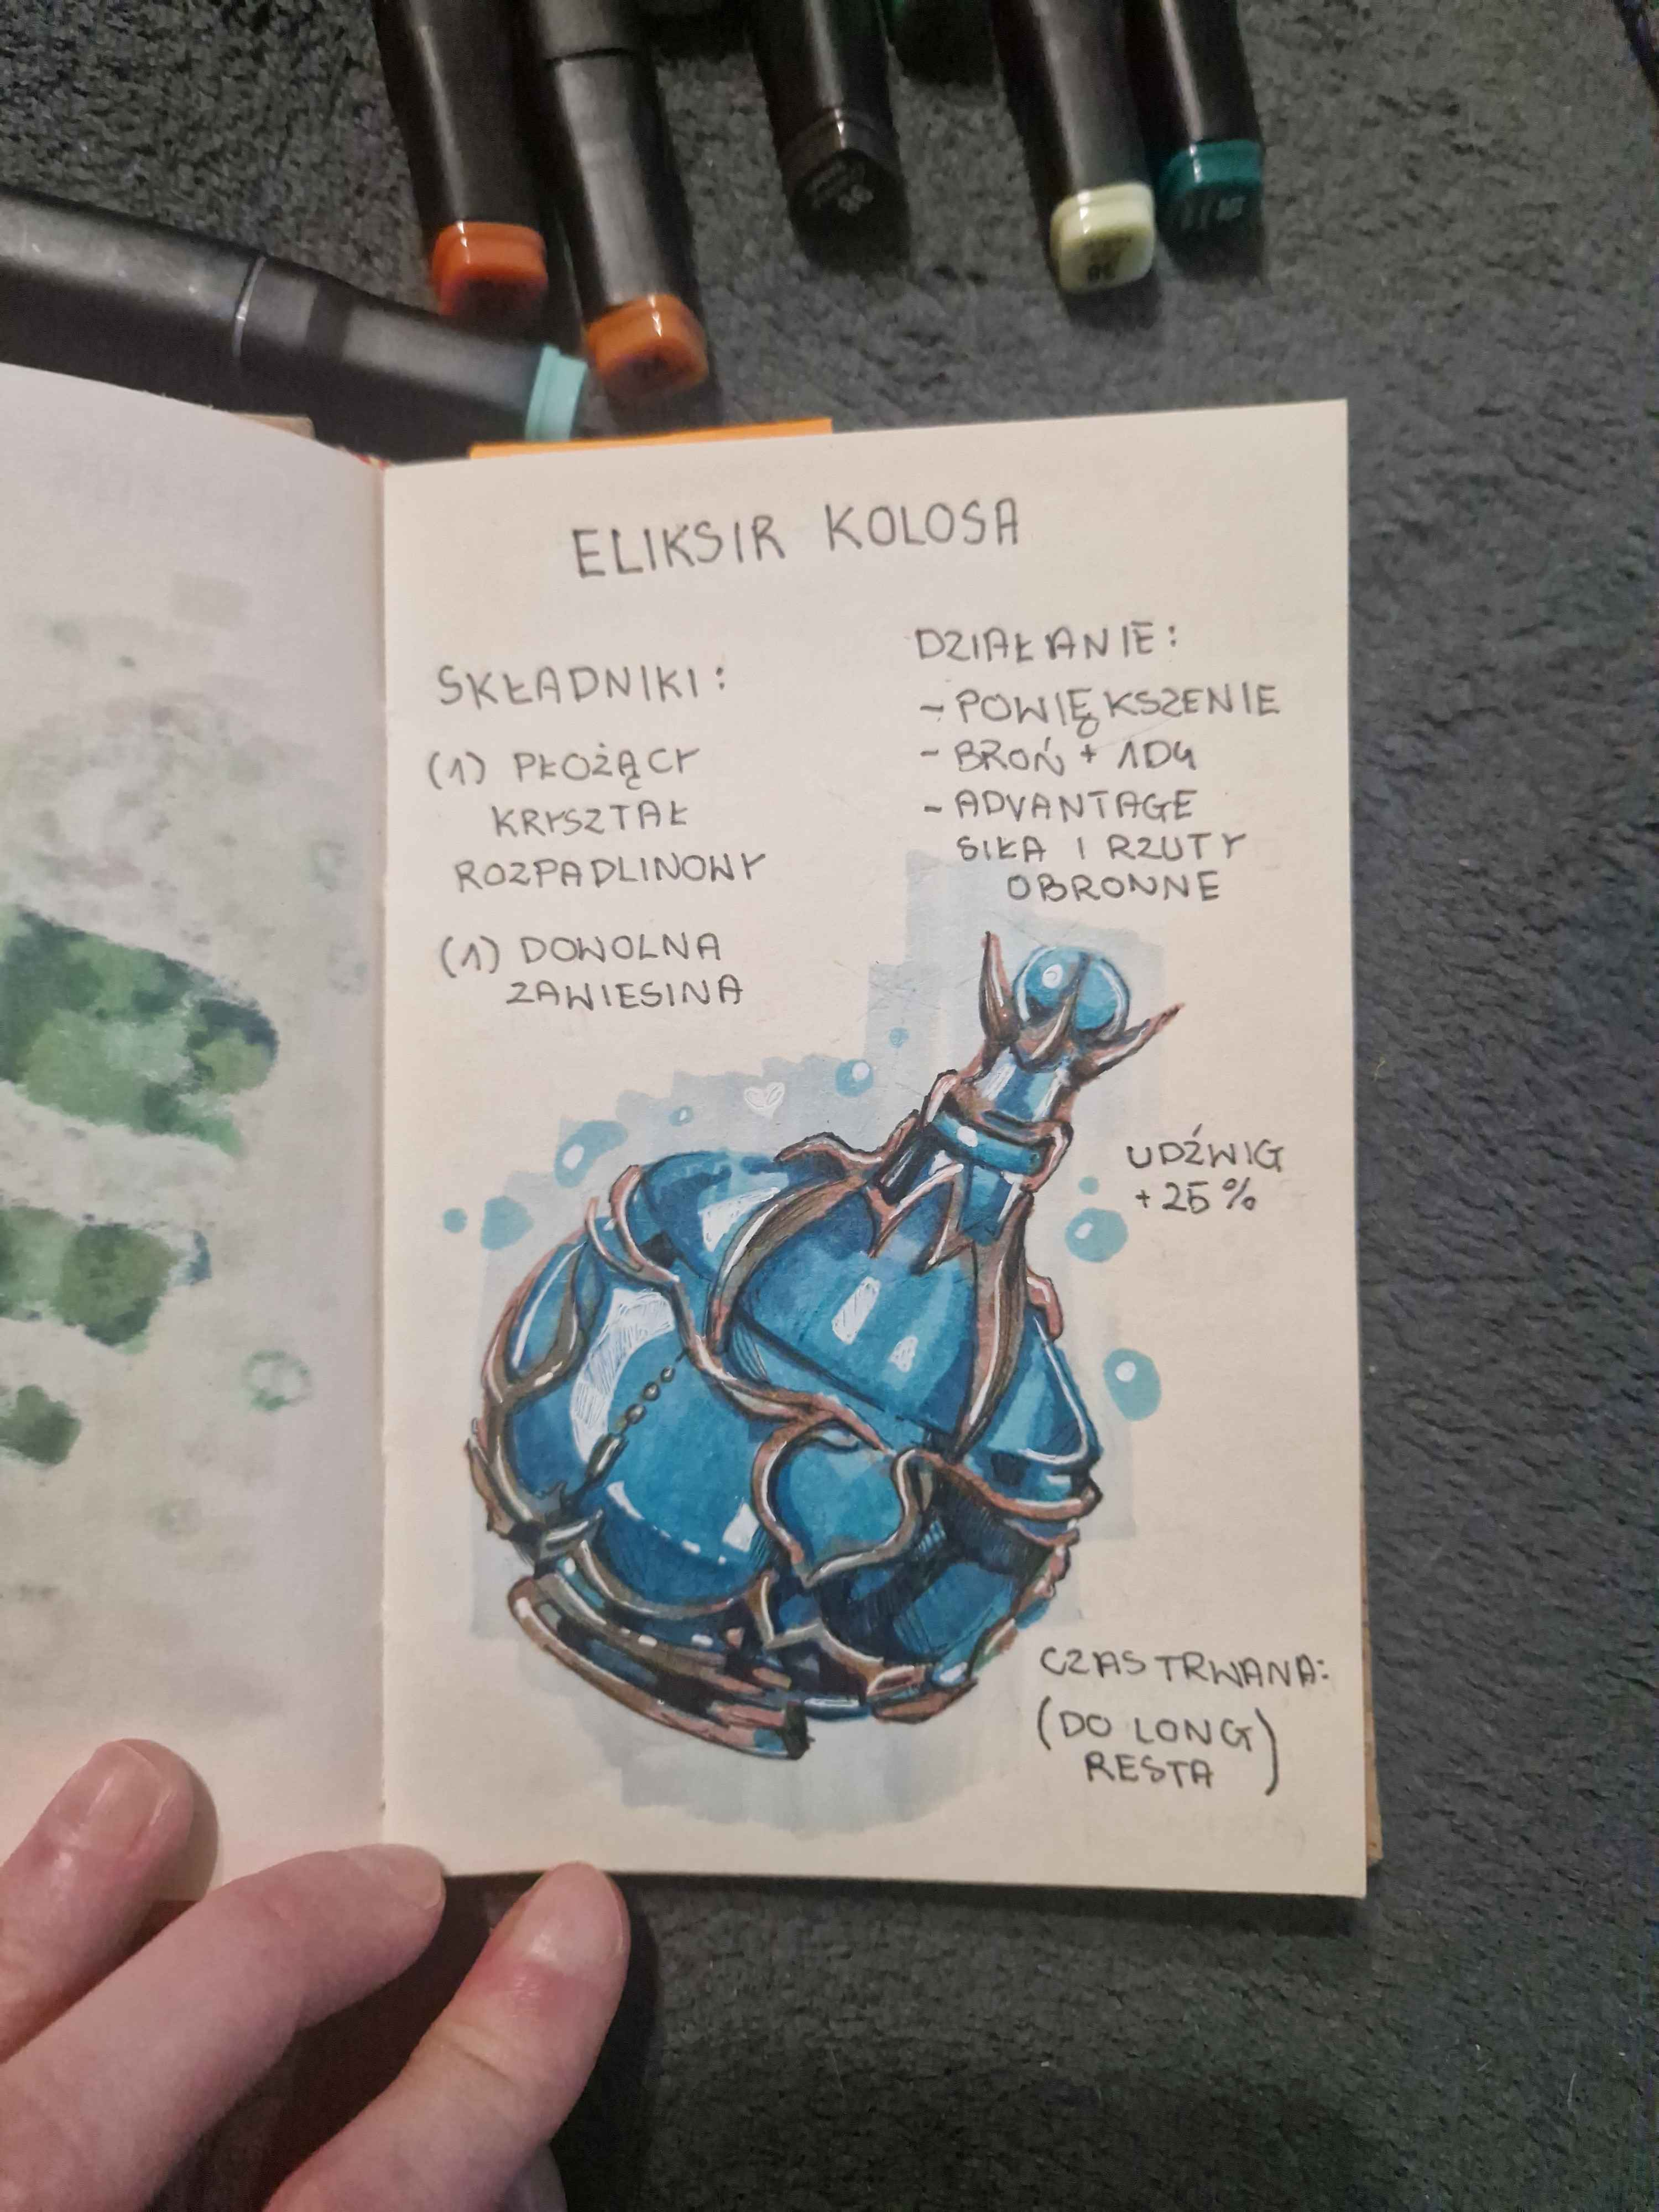 ELIKSIR KOLOSA
SKŁADNIKI:
(1) PŁOŻĄCY
KRYSZTAŁ
ROZPADLINOWY
(1) DOWOLNA
ZAWIESINA
DZIAŁANIE:
- POWIĘKSZENIE
- BROŃ + 1D4
- ADVANTAGE
SIŁA I RZUTY
OBRONNE
UDŹWIG
+25%
CZAS TRWANA:
(DO LONG)
RESTA